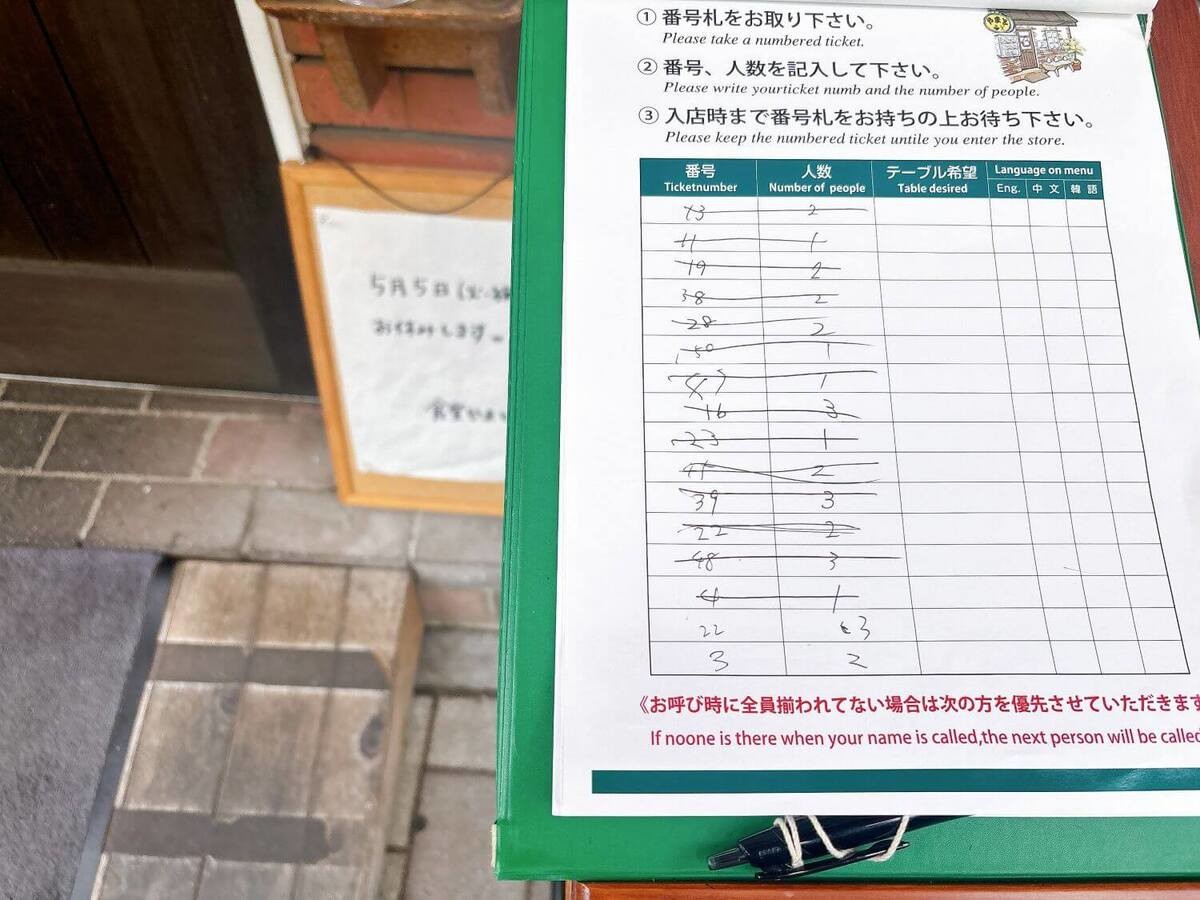 ① 番号札をお取り下さい。
Please take a numbered ticket.
② 番号、人数を記入して下さい。
Please write yourticket numb and the number of people.
③ 入店時まで番号札をお持ちの上お待ち下さい。
Please keep the numbered ticket untile you enter the store.
番号 人数 テーブル希望 Language on menu
Ticketnumber Number of people Table desired Eng. 中文 韓語
13 2
11 1
19 2
38 2
28 2
50 1
1
16 3
23 1
41 2
39 3
22 2
48 3
4 1
22 3
3 2
《お呼び時に全員揃われてない場合は次の方を優先させていただきます
If noone is there when your name is called,the next person will be called
5月5日
お休みします